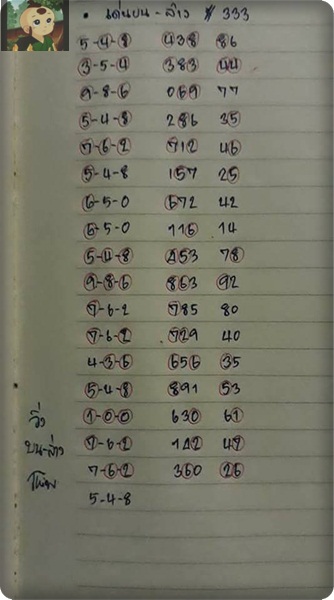 • เด่นบน - ล่าง # 333
5-4-8 438 86
3-5-4 383 44
9-8-6 069 77
5-4-8 286 35
7-6-2 712 46
5-4-8 157 25
6-5-0 672 42
6-5-0 116 14
5-4-8 453 78
9-8-6 863 92
7-6-2 785 80
7-6-2 729 40
4-3-6 656 35
5-4-8 891 53
วิ่ง 1-0-0 630 61
บน-ล่าง 7-6-2 142 49
7-6-2 360 26
5-4-8